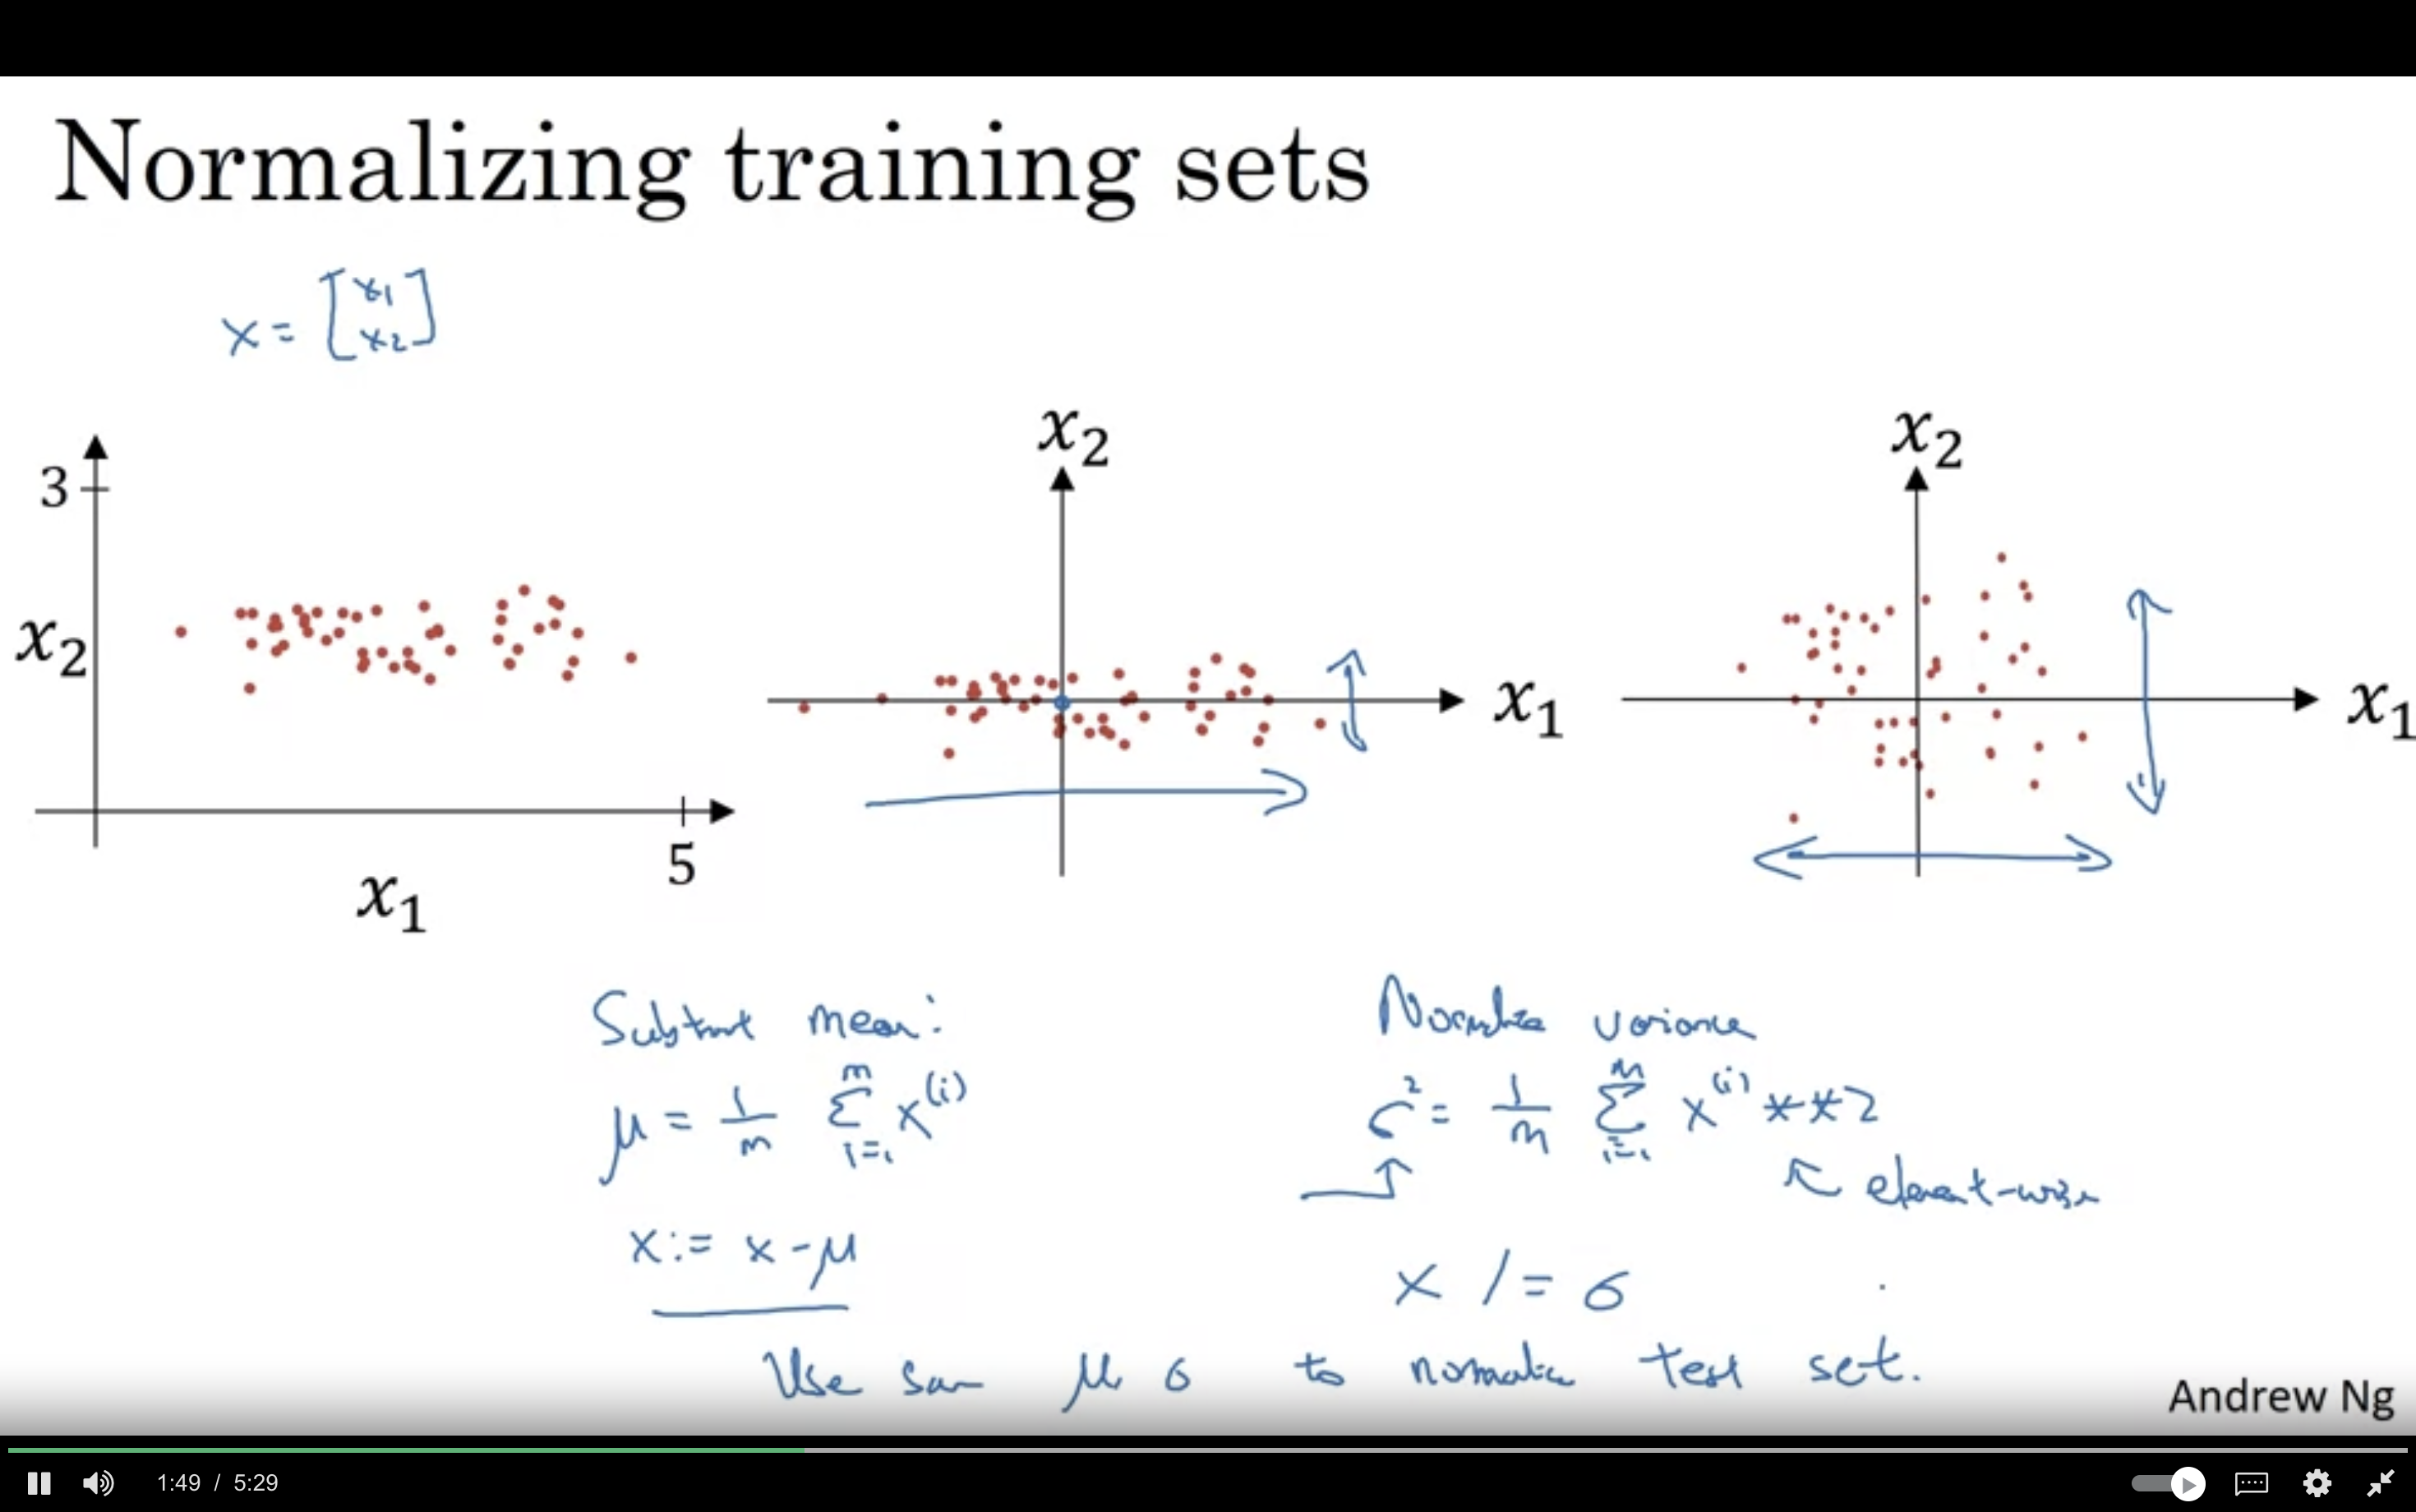 Normalizing training sets
x = [x1 x2]
3
x2
5
x1
x2
x1
x2
x1
Subtract mean:
μ = 1/m Σ i=1 m x(i)
x := x - μ
Normalize variance
σ2 = 1/m Σ i=1 m x(i) **2
element-wise
x /= σ
Use same μ σ to normalize test set.
Andrew Ng
1:49 / 5:29